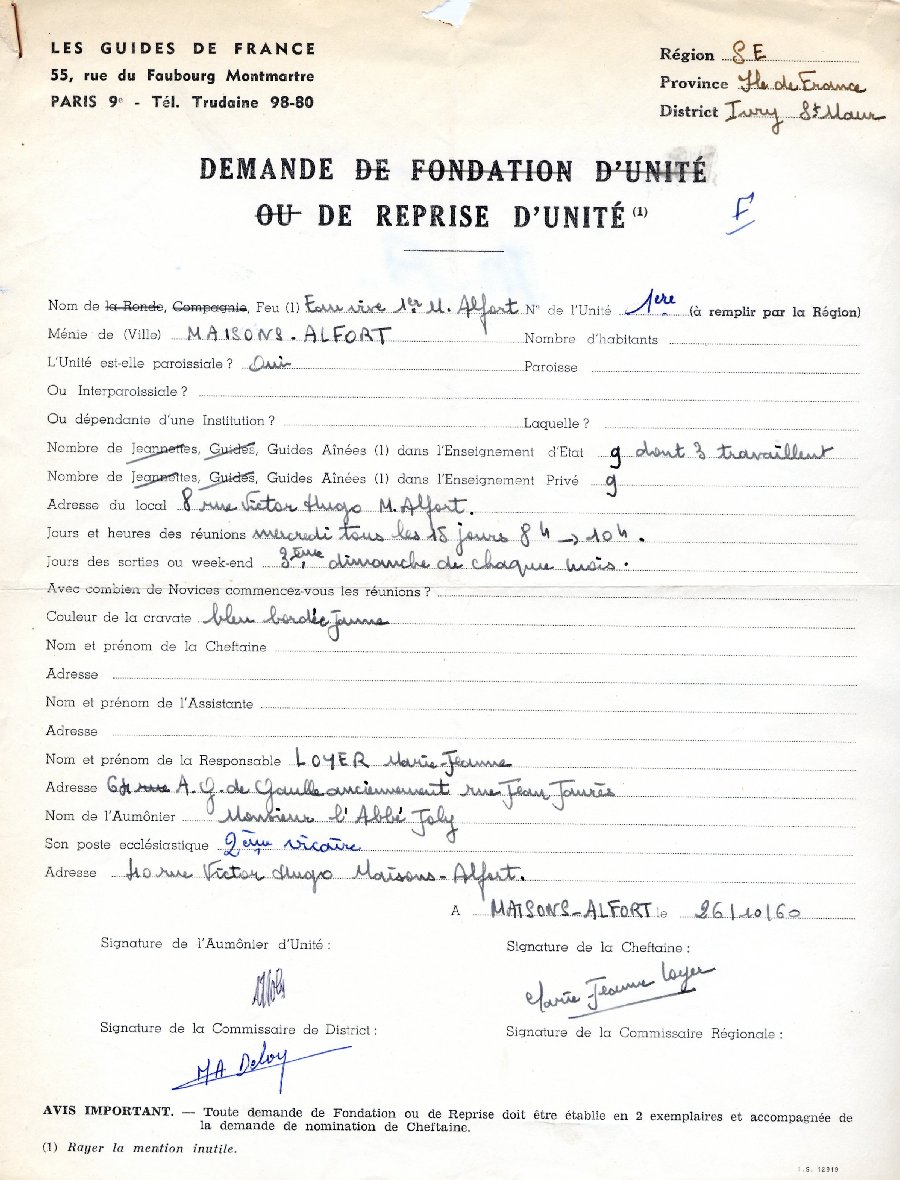 LES GUIDES DE FRANCE
55, rue du Faubourg Montmartre
PARIS 9e - Tél. Trudaine 98-80
Région SE
Province Ile de France
District Ivry St Maur
DEMANDE DE FONDATION D'UNITÉ
OU DE REPRISE D'UNITÉ (1)
F
Nom de la Ronde, Compagnie, Feu (1) Eau vive 1er M. Alfort N° de l'Unité 1ere (à remplir par la Région)
Ménie de (Ville) MAISONS-ALFORT Nombre d'habitants
L'Unité est-elle paroissiale ? Oui Paroisse
Ou Interparoissiale ?
Ou dépendante d'une Institution ? Laquelle ?
Nombre de Jeannettes, Guides, Guides Aînées (1) dans l'Enseignement d'Etat 9 dont 3 travaillent
Nombre de Jeannettes, Guides, Guides Aînées (1) dans l'Enseignement Privé 9
Adresse du local 8 rue Victor Hugo M. Alfort.
Jours et heures des réunions mercredi tous les 15 jours 8h → 10h.
Jours des sorties ou week-end 3ème dimanche de chaque mois.
Avec combien de Novices commencez-vous les réunions ?
Couleur de la cravate bleu bordée jaune
Nom et prénom de la Cheftaine
Adresse
Nom et prénom de l'Assistante
Adresse
Nom et prénom de la Responsable LOYER Marie-Jeanne
Adresse rue A. G. de Gaulle anciennement rue Jean Jaurès
Nom de l'Aumônier Monsieur l'Abbé Joly
Son poste ecclésiastique 2ème vicaire
Adresse rue Victor Hugo Maisons-Alfort.
A MAISONS-ALFORT le 26/10/60
Signature de l'Aumônier d'Unité :
Signature de la Cheftaine :
Marie-Jeanne Loyer
Signature de la Commissaire de District :
Signature de la Commissaire Régionale :
MA Deloy
AVIS IMPORTANT. — Toute demande de Fondation ou de Reprise doit être établie en 2 exemplaires et accompagnée de
la demande de nomination de Cheftaine.
(1) Rayer la mention inutile.
I.S. 12919